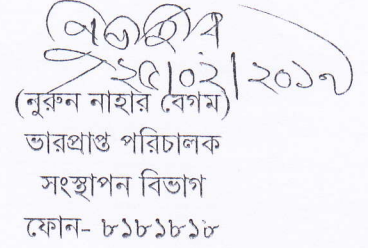 ২৫|০২|২০১৭
(নুরুন নাহার বেগম)
ভারপ্রাপ্ত পরিচালক
সংস্থাপন বিভাগ
ফোন- ৮১৮১৮১৮